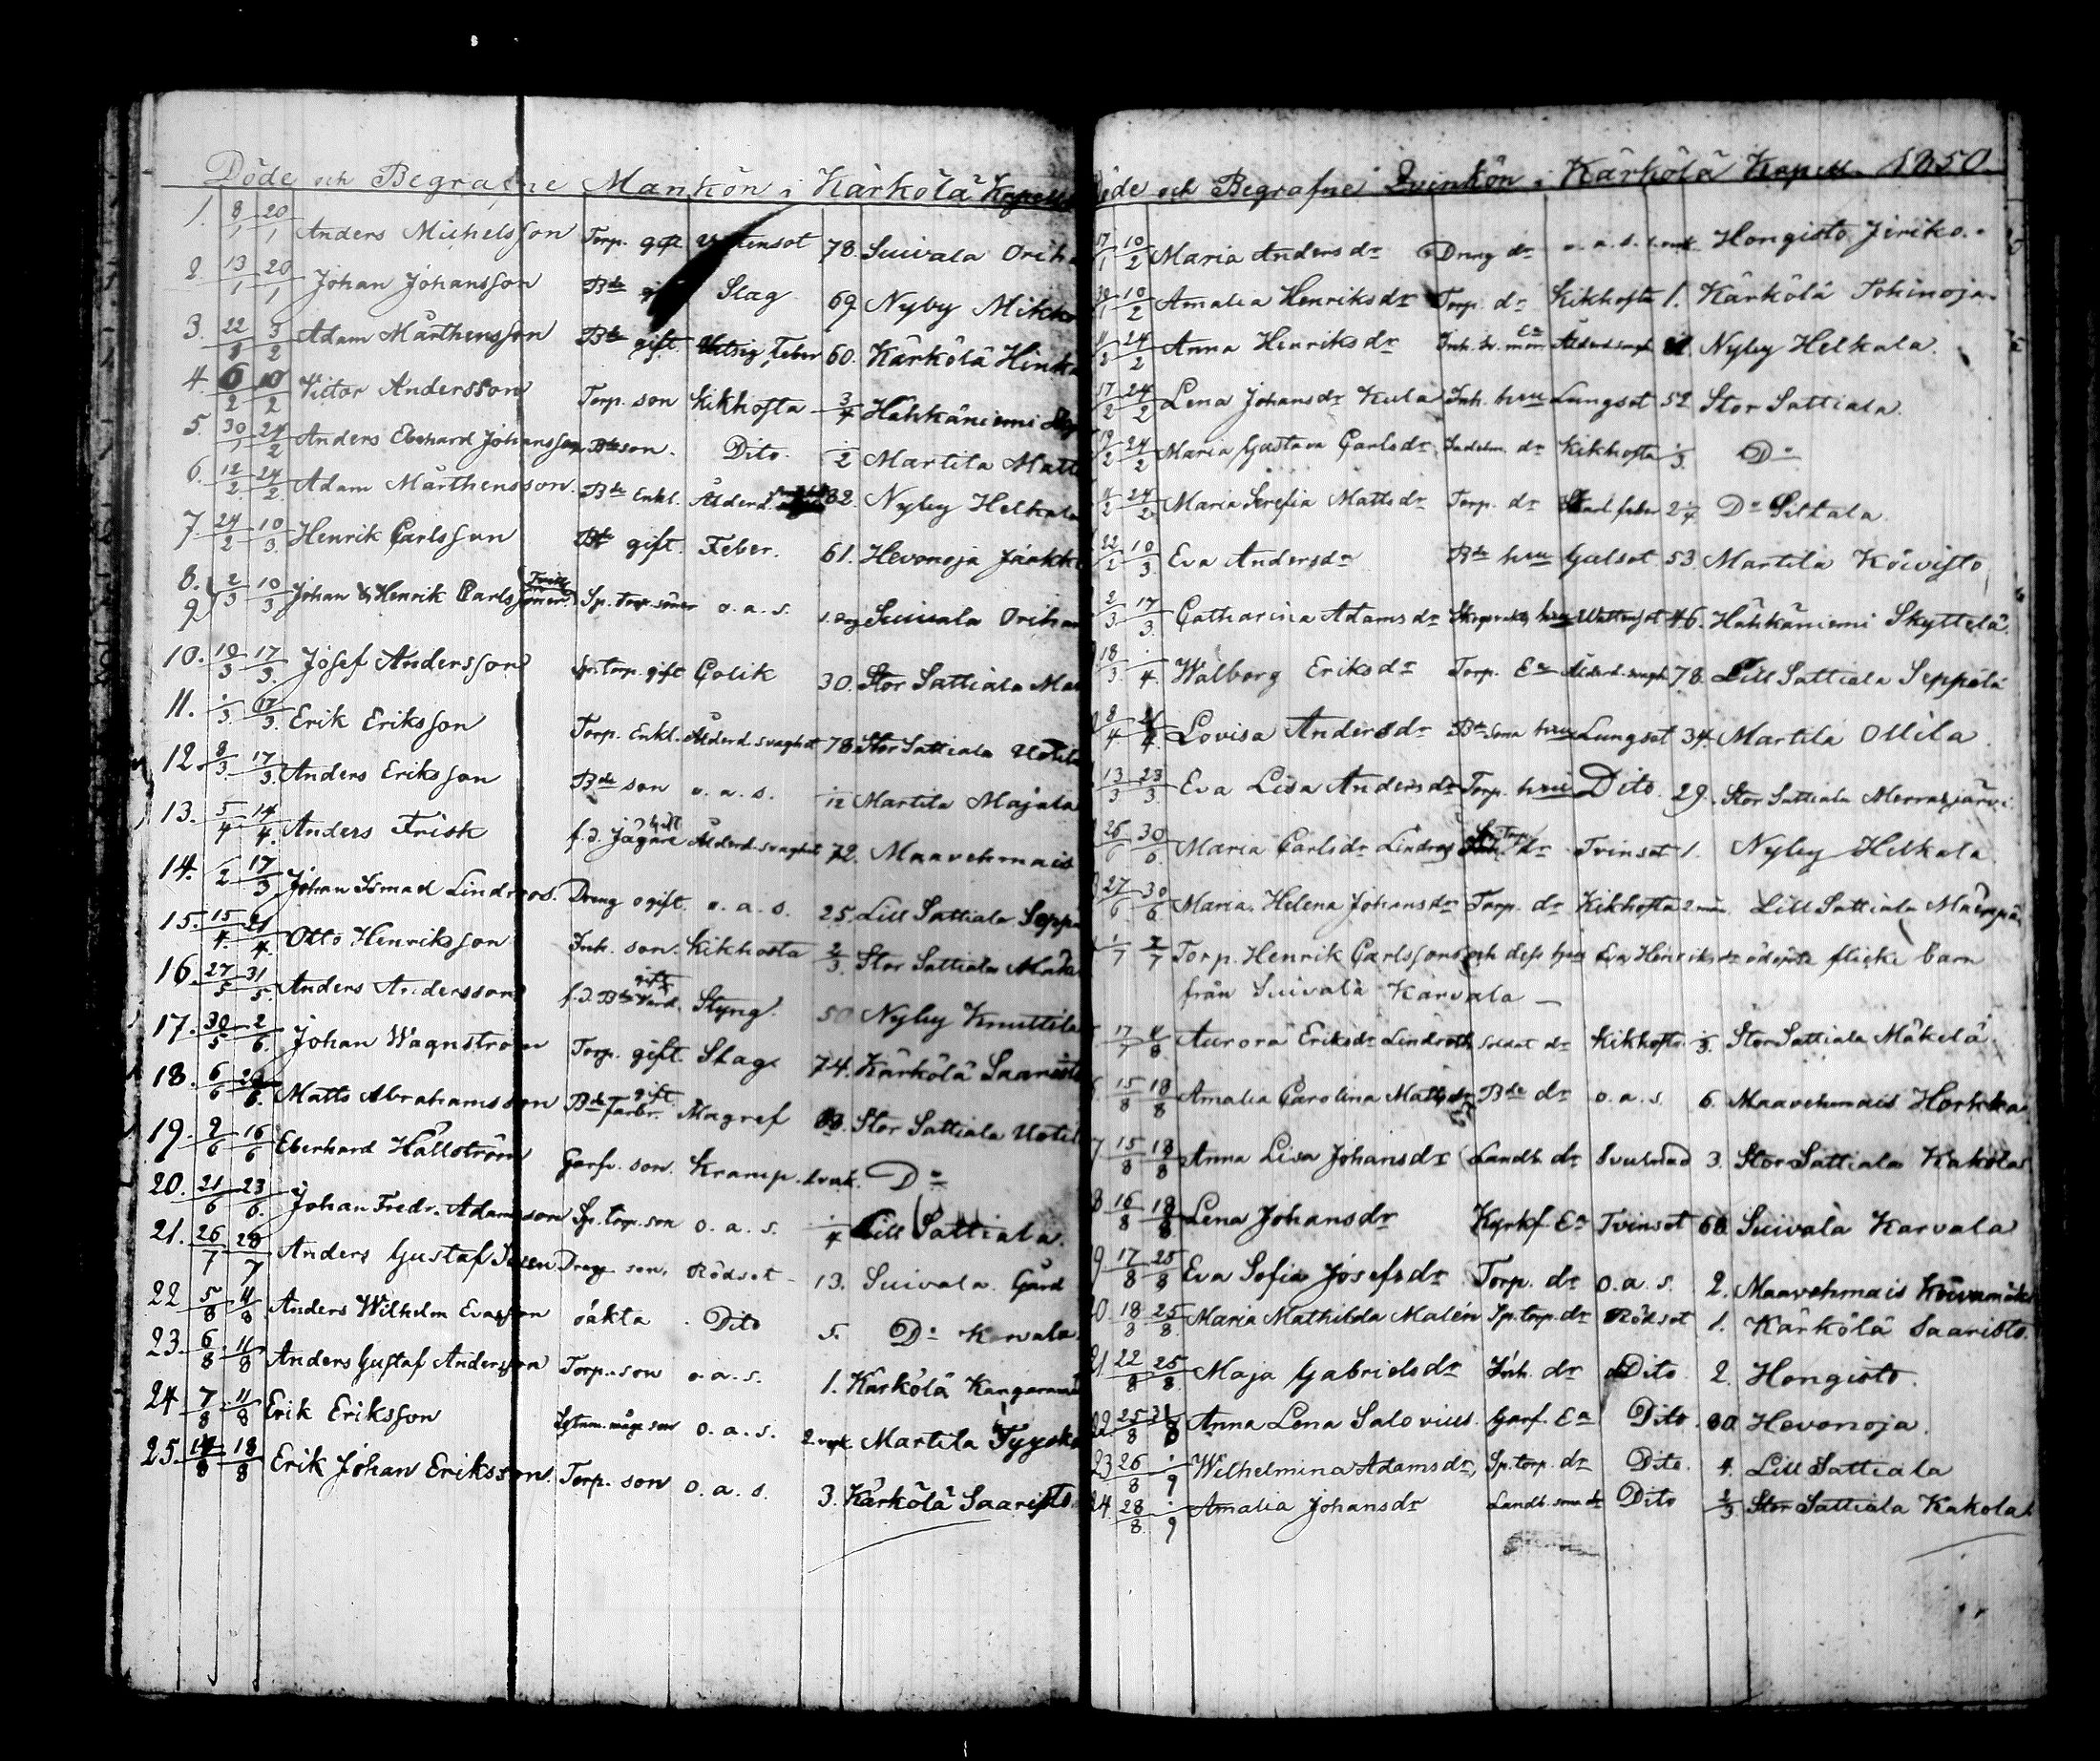 Döde och Begrafne Mankön i Kärkölä Kapell
1. 8/1 20/1 Anders Michelsson Torp. gift 78. Suivala Orih
2. 13/1 20/1 Johan Johansson Bde Slag 69 Nyby Mikko
3. 22/1 3/2 Adam Mårthensson Bde gift feber 60. Kärkölä Hink
4. 6/2 10/2 Victor Andersson Torp. son Kikhosta 3/4 Hähkäniemi
5. 30/1 24/2 Anders Eberhard Johansson Bde son. Dito. 1/2 Martila Matt
6. 12/2 24/2 Adam Mårthensson. Bde Enkl. Ålderd. 82. Nyby Helkala
7. 24/2 10/3 Henrik Carlsson Bde gift. Feber. 61. Hevonoja Jarkk
8. 9 2/3 10/3 Johan & Henrik Carlssöner. Sp. torp. söner o. a. s. 1. dag Suivala Orihar
10. 10/3 17/3 Josef Andersson Sp. torp. gift Colik 30. Stor Sattiala
11. 1/3 17/3 Erik Eriksson Torp. Enkl. Ålderd. svaghet 78. Stor Sattiala Uotila
12. 8/3 17/3 Anders Eriksson Bde son o. a. s. 1/12 Martila Majala
13. 5/4 14/4 Anders Frisk f. d. Jägare Ålderd. svaghet 72. Maavehmais
14. 2 17/3 Johan Lindroos. Dreng ogift. o. a. s. 25. Lill Sattiala Seppä
15. 15/4 21/4 Otto Henriksson Inh. son. Kikhosta 2/3. Stor Sattiala Mäke
16. 27/5 31/5 Anders Andersson f. d. Bde gift Styng. 50 Nyby Knuttila
17. 30/5 2/6 Johan Wagnström Torp. gift. Slag. 74. Kärkölä Saaristo
18. 6/6 Matts Abrahamsson Bde farbr. gift Magref 63. Stor Sattiala Uotil
19. 9/6 16/6 Eberhard Hällström Garfv. son. Kramp. 1. vek. Do
20. 21/6 23/6 Johan Fredr. Adamsson Sp. torp. son o. a. s. 1/4 Lill Sattiala.
21. 26/7 28/7 Anders Gustaf Dreng son. Rödsot 13. Suivala Gård
22 5/8 11/8 Anders Wilhelm Evasson oäkta Dito 5. Do Karvala
23. 6/8 11/8 Anders Gustaf Andersson Torp. son o. a. s. 1. Kärkölä
24 7/8 11/8 Erik Eriksson o. a. s. 2. Martila Tyysk
25. 14/8 18/8 Erik Johan Eriksson. Torp. son o. a. s. 3. Kärkölä Saaristo
Döde och Begrafne Qvinkön i Kärkölä Kapell. 1850.
17/1 10/2 Maria Andersdr Dreng dr o. a. s. Hongisto Jeriko.
10/2 Amalia Henriksdr Torp. dr Kikhosta 1. Kärkölä Pohinoja
24/2 Anna Henriksdr Inh. Ea Ålderd. svagh. Nyby Helkala.
17/2 24/2 Lena Johansdr Kula Inh. hru Lungsot 52 Stor Sattiala.
19/2 24/2 Maria Gustava Carlsdr Indelm. dr Kikhosta 1/3. Do
24/2 Maria Serefia Mattsdr Torp. dr Skarl. feber 2 1/4 Do Siltala.
22/2 10/3 Eva Andersdr Bde hru Gulsot 53. Martila Koivisto
2/3 17/3 Catharina Adamsdr hru Wattusot 46. Hähkäniemi Skyttelä.
18/3 1/4 Walborg Eriksdr Torp. Ea Ålderd. svagh. 78. Lill Sattiala Seppälä
8/4 21/4 Lovisa Andersdr Bde sons hru Lungsot 34. Martila Ollila
13/3 23/3 Eva Lisa Andersdr Torp. hru Dito. 29. Stor Sattiala
26/6 30/6 Maria Carlsdr Lindroos dr Tvinsot 1. Nyby Helkala.
27/6 30/6 Maria Helena Johansdr Torp. dr Kikhosta 2 mån. Lill Sattiala Mäenpää
1/7 7/7 Torp. Henrik Carlssons och dess hru Eva Henriksdrs odöpta flicke barn
från Suivala Karvala
17/7 4/8 Aurora Eriksdr Lindroth Soldat dr Kikhosta 1/3. Stor Sattiala Mäkelä.
15/8 18/8 Amalia Carolina Mattsdr Bde dr o. a. s. 6. Maavehmais Horkka
7 15/8 18/8 Anna Lisa Johansdr Landb. dr Svulnad 3. Stor Sattiala Kakola
8 16/8 18/8 Lena Johansdr Kyrkf. Ea Tvinsot 60 Suivala Karvala
9 17/8 25/8 Eva Sofia Josefsdr Torp. dr o. a. s. 2. Maavehmais
20 18/8 25/8 Maria Mathilda Malén Sp. torp. dr Rödsot 1. Kärkölä Saaristo.
21 22/8 25/8 Maja Gabrielsdr Inh. dr Dito. 2. Hongisto.
22 25/8 Anna Lena Salovius. Garf. Ea Dito. 80. Hevonoja.
23 26/8 1/9 Wilhelmina Adamsdr Sp. torp. dr Dito. 4. Lill Sattiala
24. 28/8 1/9 Amalia Johansdr Landb. sons dr Dito 2/3. Stor Sattiala Kakola